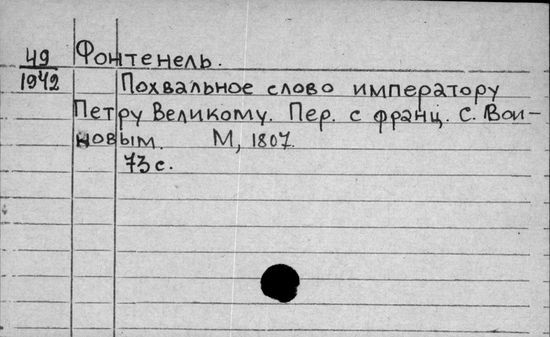 49
1942
Фонтенель.
Похвальное слово императору
Петру Великому. Пер. с франц. С. Вои-
новым. М, 1807.
73 с.